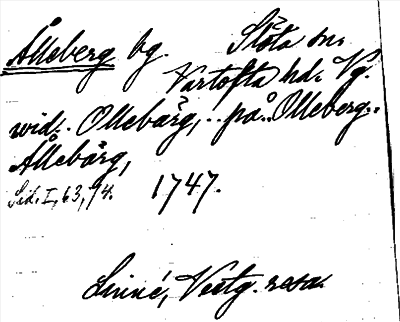 Ålleberg bg. Slöta sn.
Vartofta hd. Vg.
wid. Ollebärg, .. på.. Olleberg..
Ållebärg,
Sid. I, 63, 74. 1747.
Linné, Vestg. resa.